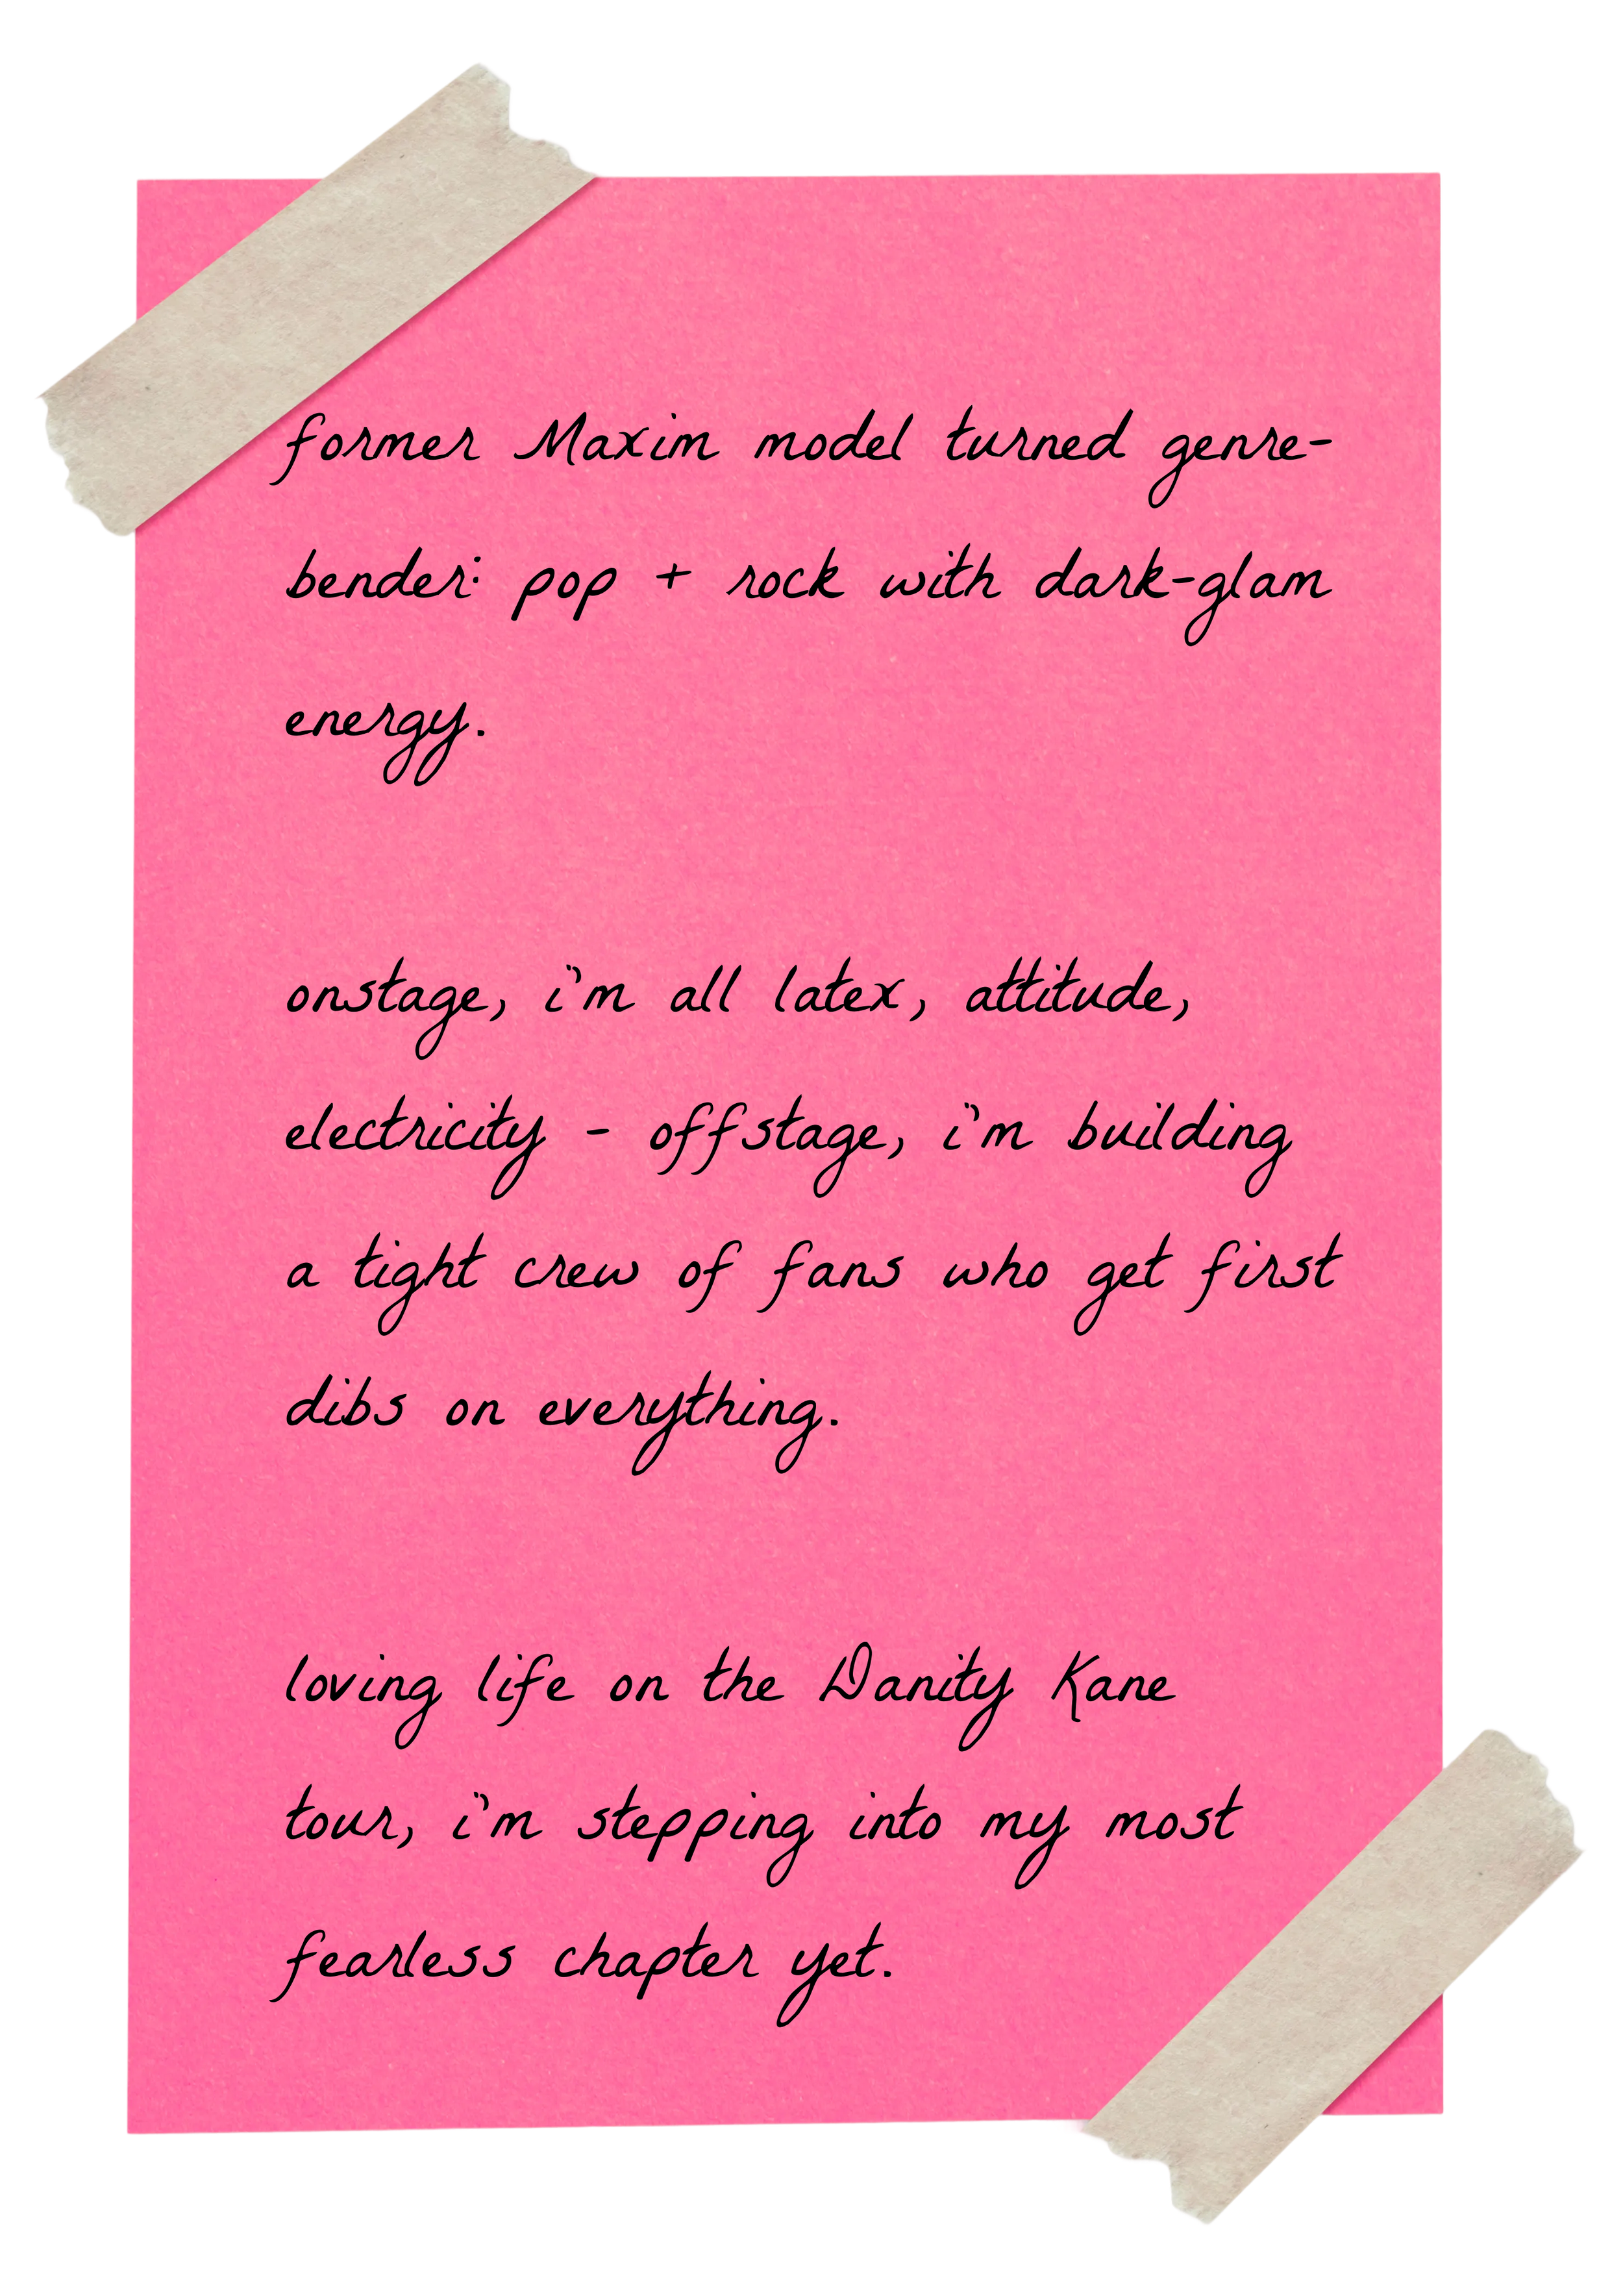 former Maxim model turned genre-
bender: pop + rock with dark-glam
energy.
onstage, i'm all latex, attitude,
electricity - offstage, i'm building
a tight crew of fans who get first
dibs on everything.
loving life on the Danity Kane
tour, i'm stepping into my most
fearless chapter yet.